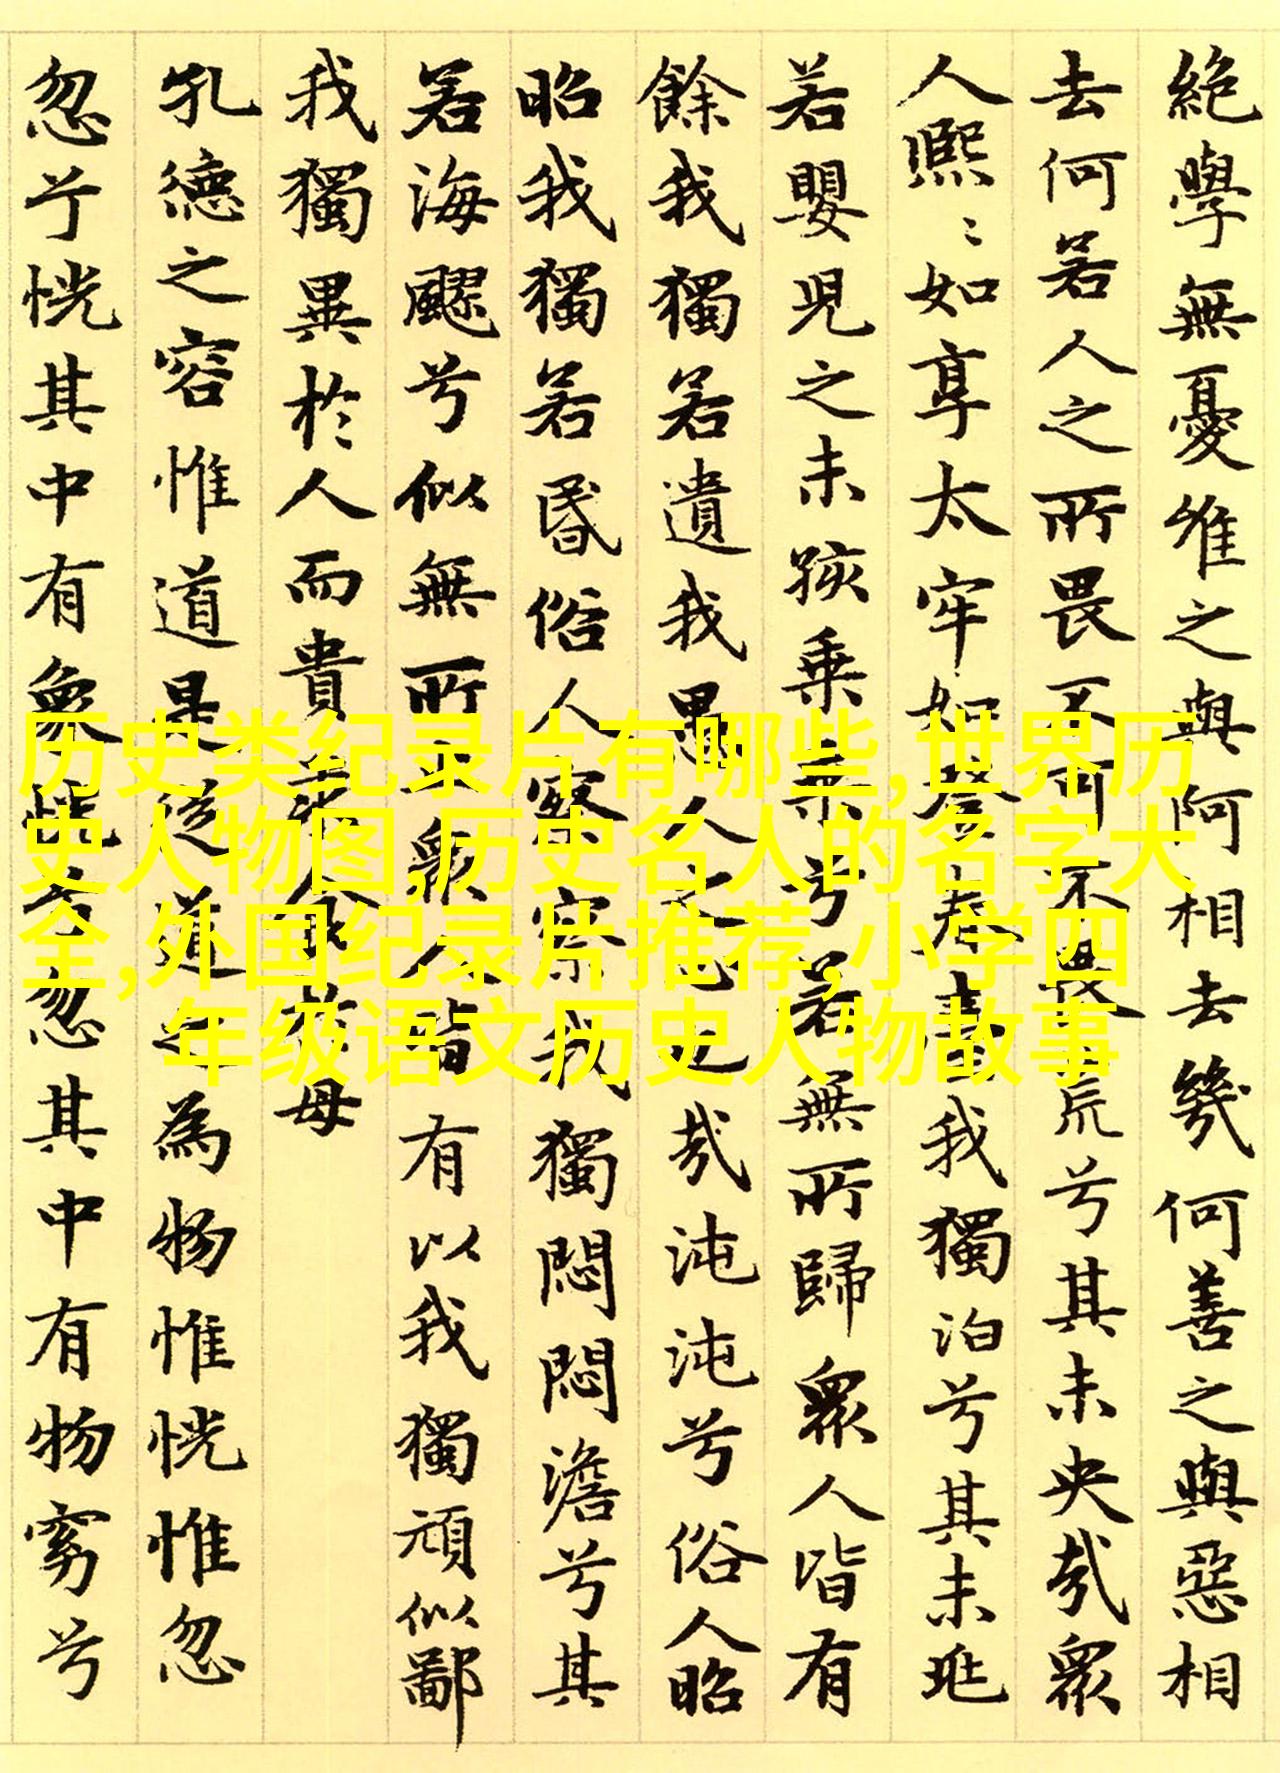 絕學無憂唯之與阿相去幾何善之與惡相
去何若人之所畏不可不畏荒兮其未央哉眾
人熙〻如享太牢如登春臺我獨泊兮其未兆
若嬰兒之未孩乘乘兮若無所歸眾人皆有
餘我獨若遺我愚人之心也哉沌沌兮俗人昭
昭我獨若昏俗人察察我獨悶悶澹兮其
若海飂兮似無所止眾人皆有以我獨頑似鄙
我獨異於人而貴求食於母
孔德之容惟道是從道之為物惟恍惟忽
忽兮恍其中有象恍兮忽其中有物窈兮
历史类纪录片有哪些,世界历
史人物图,历史名人的名字大
全,外国纪录片推荐,小学四
年级语文历史人物故事